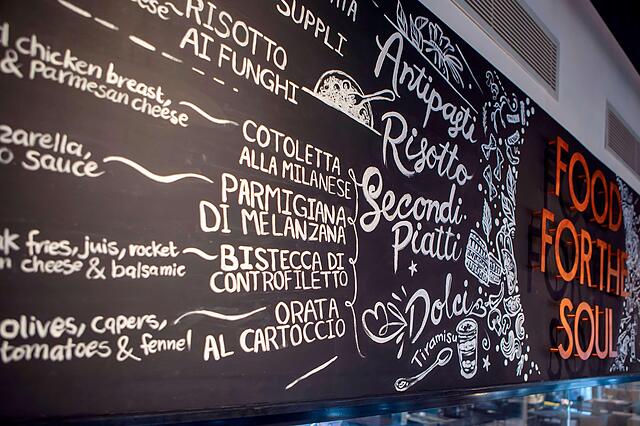 cheese
RISOTTO
AI FUNGHI
SUPPLI
chicken breast,
& parmesan cheese
COTOLETTA
ALLA MILANESE
sauce
PARMIGIANA
DI MELANZANA
fries, juis, rocket
cheese & balsamic
BISTECCA DI
CONTROFILETTO
olives, capers,
tomatoes & fennel
ORATA
AL CARTOCCIO
Antipasti
Risotto
Secondi
Piatti
Dolci
Tiramisu
FOOD
FOR THE
SOUL